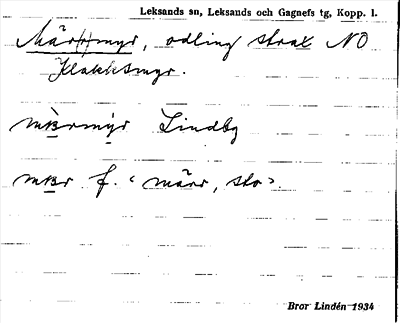 Leksands sn, Leksands och Gagnefs tg, Kopp. l.
Mär(r)myr, odling strax NO
Klakksmyr.
mærmýr Lindby
mær f. "märr, sto".
Bror Lindén 1934